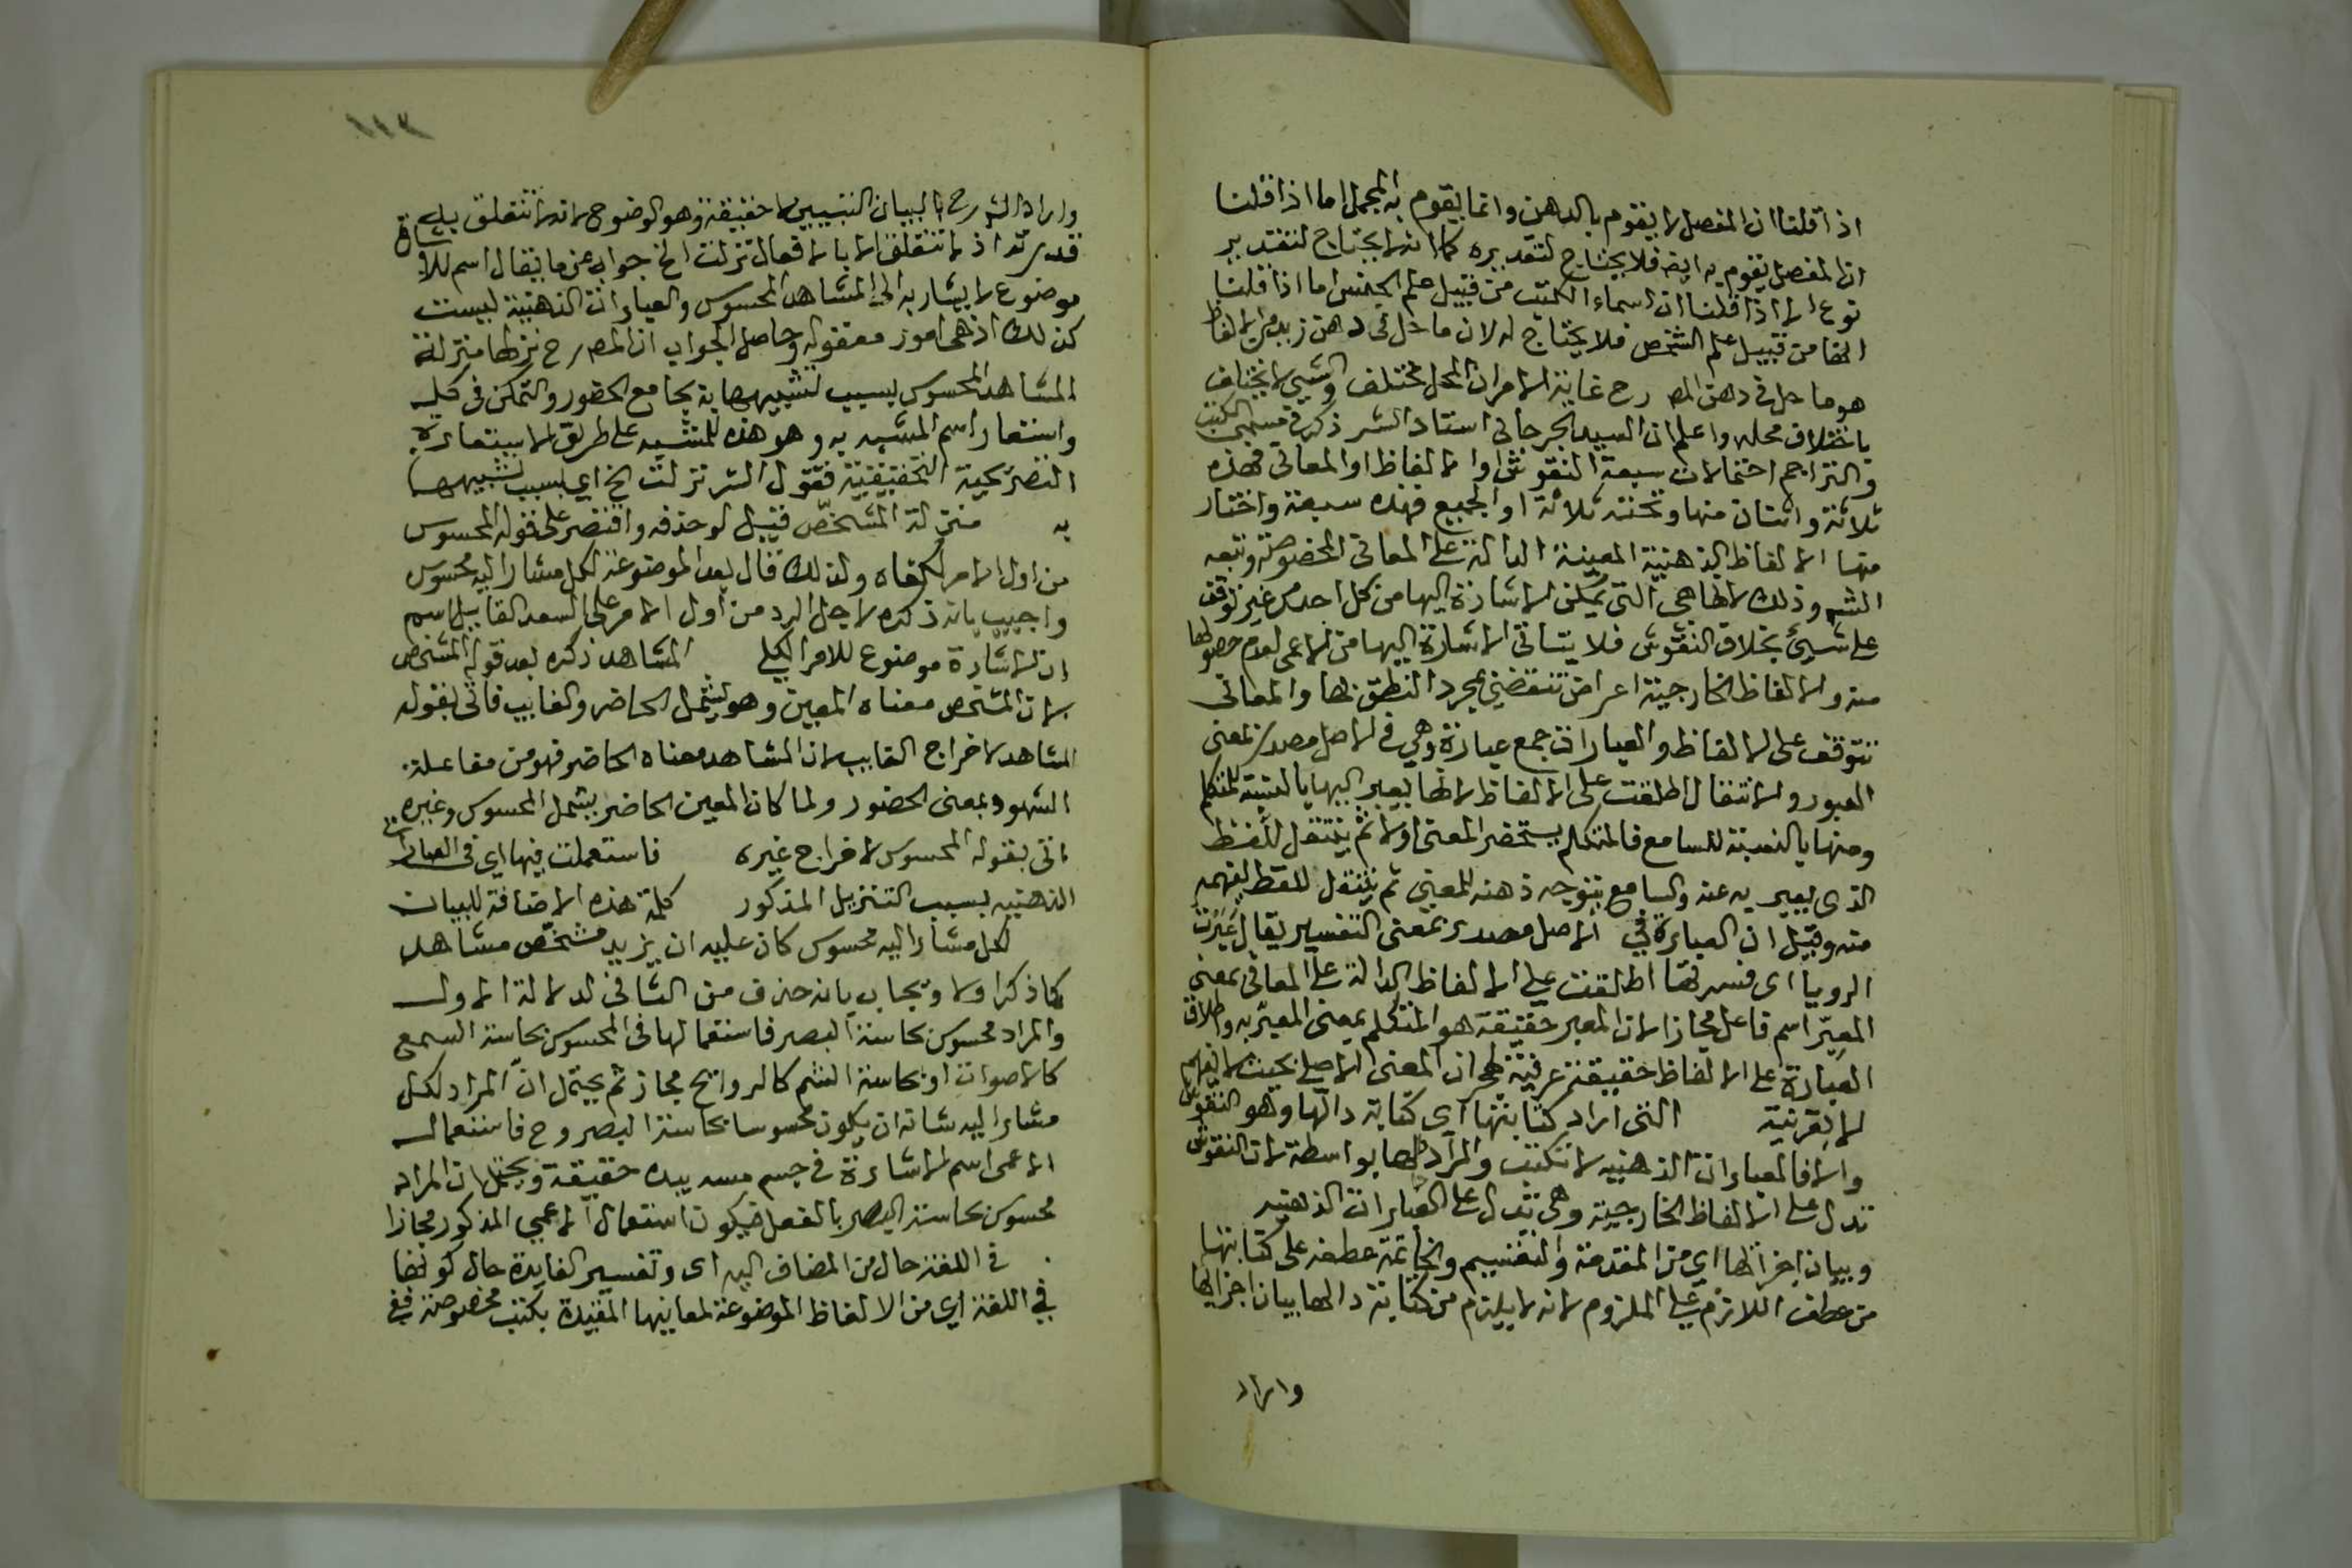 اذا قلنا ان المفصل لا يقوم بالدهن وانما يقوم به المجمل اما اذا قلنا
ان المفصل يقوم به ايضا فلا يحتاج لتقديره كما انه لا يحتاج لتقدير
نوع الا اذا قلنا ان اسماء الكتب من قبيل علم الجنس اما اذا قلنا
انها من قبيل علم الشخص فلا يحتاج له لان ما حل في دهن زيد من الالفاظ
هو ما حل في دهن المص رح غاية الامر ان المحل مختلف والشيء لا يختلف
باختلاف محله واعلم ان السيد الجرجاني استاد الشر ذكر في مسمى الكتب
والتراجم احتمالات سبعة النقوش او الالفاظ او المعاني فهذه
ثلاثة واثنان منها وتحته ثلاثة او الجميع فهذه سبعة واختار
منها الالفاظ الذهنية المعينة الدالة على المعاني المخصوصة وتبعه
الشر وذلك لانها هي التي يمكن الاشارة اليها من كل احد من غير توقف
على شيئ بخلاف النقوش فلا يتاتى الاشارة اليها من الاعمى لعدم حصولها
منه والالفاظ الخارجية اعراض تنقضي بمجرد النطق بها والمعاني
تتوقف على الالفاظ والعبارات جمع عبارة وهي في الاصل مصدر بمعنى
العبور والانتقال اطلقت على الالفاظ لانها يعبر اليها بالنسبة للمتكلم
ومنها بالنسبة للسامع فالمتكلم يستحضر المعنى اولا ثم ينتقل للفظ
الذي يعبر به عنه والسامع يتوجه ذهنه للمعنى ثم ينتقل للفظ لفهمه
منه وقيل ان العبارة في الاصل مصدر بمعنى التفسير يقال عبرت
الرويا اى فسرتها اطلقت على الالفاظ الدالة على المعاني بمعنى
المعبر اسم فاعل مجازا لان المعبر حقيقة هو المتكلم بمعنى المعبر به واطلاق
العبارة على الالفاظ حقيقة عرفية لهجران المعنى الاصلي بحيث لا يفهم
الا بقرنية التى اراد كتابتها اى كتابة دالها وهو النقوش
والا فالعبارات الذهنيه لا تكتب والمراد دالها بواسطة لان النقوش
تدل على الالفاظ الخارجية وهى تدل على العبارات الذهنيه
وبيان اجزائها اي من المقدمة والتقسيم والخاتمة عطفه على كتابتها
من عطف اللازم على الملزوم لانه لا يلزم من كتابة دالها بيان اجزائها
واراد
١١٢
واراد الشرح بالبيان التبيين لا حقيقة وهو الوضوح لانه لا تتعلق به
قدرته اذ لا تتعلق الا بالافعال نزلت الخ جواب عن ما يقال اسم للاشارة
موضوع لا يشار به الى المشاهد المحسوس والعبارات الذهنية ليست
كذلك اذ هى امور معقوله وحاصل الجواب ان المص رح نزلها منزلة
المشاهد المحسوس بسبب لتشبيهها به بجامع الحضور والتمكن فى كل
واستعار اسم المشبه به وهو هذه للمشبه على طريق الاستعارة
التصريحية التحقيقية فقول الشر نزلت الخ اي بسبب تشبيهها
به منزلة المشخص قيل لو حذفه واقتصر على قوله المحسوس
من اول الامر لكفاه ولذلك قال بعد الموضوعة لكل مشار اليه محسوس
واجيب بانه ذكره لاجل الرد من اول الامر على السعد القايل اسم
ان الاشارة موضوع للامر الكلي المشاهد ذكره بعد قوله المشخص
لان المشخص معناه المعين وهو يشمل الحاضر والغايب فاتى بقوله
المشاهد لاخراج الغايب لان المشاهد معناه الحاضر فهو من مفاعلة
الشهود بمعنى الحضور ولما كان المعين الحاضر يشمل المحسوس وغيره
اتى بقوله المحسوس لاخراج غيره فاستعملت فيها اى فى العبارات
الذهنيه بسبب التنزيل المذكور كلمة هذه الاضافة للبيان
لكل مشار اليه محسوس كان عليه ان يزيد مشخص مشاهد
كما ذكر اولا ويجاب بانه حذف من الثاني لدلالة الاول
والمراد محسوس بحاسة البصر فاستعمالها فى المحسوس بحاسة السمع
كالاصوات او بحاسة الشم كالروايح مجاز ثم يحتمل ان المراد لكل
مشار اليه شانه ان يكون محسوسا بحاسة البصر وح فاستعمال
الاعمى اسم الاشارة في جسم مسه بيده حقيقة ويحتمل ان المراد
محسوس بحاسة البصر بالفعل فيكون استعمال الاعمى المذكور مجازا
في اللغة حال من المضاف اليه اى وتفسير الفايدة حال كونها
في اللغة اي من الالفاظ الموضوعة لمعانيها المفيدة بكتب مخصوصة ففي